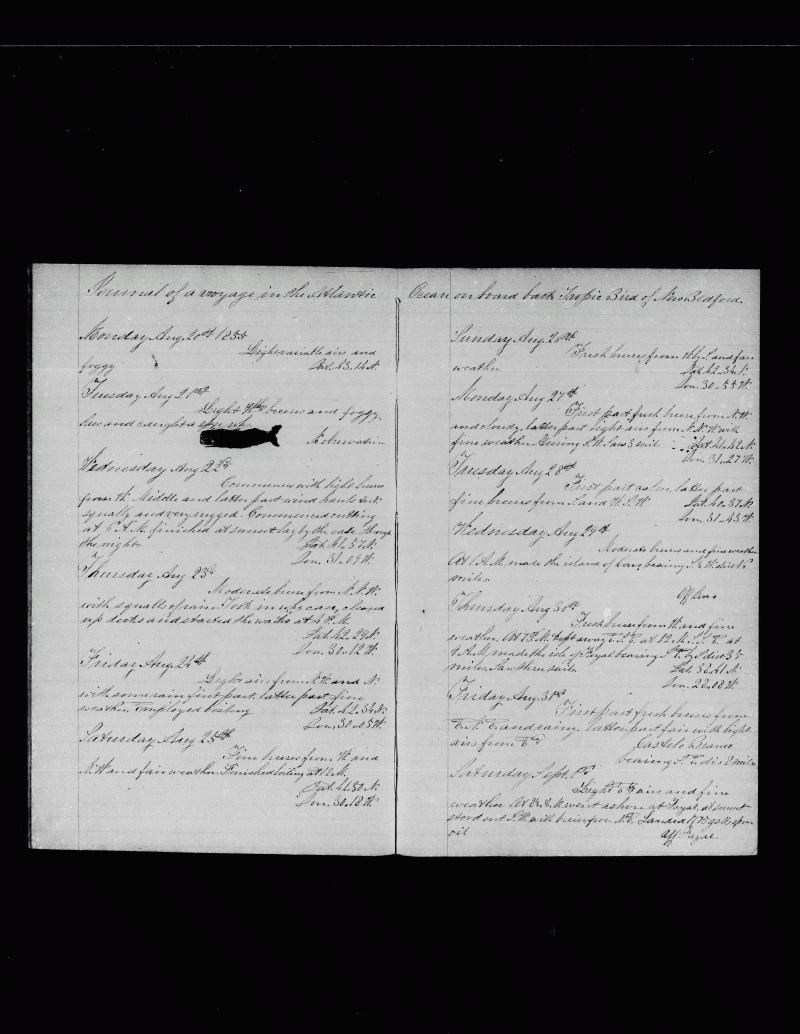 Journal of a voyage in the Atlantic
Monday Aug. 20th 1855
Light variable airs and
foggy Lat. 43.14 N.
Tuesday Aug 21st
Light breeses and foggy
and caught a
No observation
Wednesday Aug 22d
Commences with light breeses
from th. Middle and latter part wind hauls to N.
squally and very rugged. Commenced cutting
at 6 A.M. finished at sunset lay by the case through
the night. Lat. 41.57 N.
Lon. 31.09 W.
Thursday Aug 23d
Moderate breese from N.N.W.
with squalls of rain. Took in up case, cleared
up decks and started the works at 4 P.M.
Lat. 42.29 N.
Lon. 30.12 W.
Friday Aug. 24th
Light airs from N.W. and N.
with some rain first part, latter part fine
weather, employed boiling Lat. 42.34 N.
Lon. 30.05 W.
Saturday Aug 25th
Fine breese from W. and
N.W. and fair weather. Finished boiling at 12 M.
Lat. 41.50 N.
Lon. 30.18 W.
Ocean on board bark Tropic Bird of New Bedford.
Sunday Aug. 26th
Fresh breese from and fair
weather. Lat. 42.34 N.
Lon. 30.55 W.
Monday Aug 27th
First part fresh breese from N.W.
and cloudy, latter part light airs from N.N.W. with
fine weather. Steering S.W. Saw 3 sail Lat. 41.42 N.
Lon. 31.27 W.
Tuesday Aug 28th
First part calm, latter part
fine breese from S and W.S.W Lat. 40.37 N.
Lon. 31.45 W.
Wednesday Aug 29th
Moderate breese and fine weather
At 1 A.M. made the island of Corvo bearing dist
miles
Off Corvo
Thursday Aug 30th
Fresh breese from W. and fine
weather. At 7 P.M. kept away E.S.E. at 12 M. S.E. at
9 A.M. made the isle of Fayal bearing S.E. by S dist 35
miles, Saw three sails. Lat. 38.41 N.
Lon. 28.08 W.
Friday Aug. 31st
First part fresh breese from
E.N.E. and rainy. latter part fair with light
airs from Castelo Branco
bearing S.E. dis 8 miles
Saturday Sept. 1st
Light airs and fine
weather At 8 A.M. went ashore at Fayal, at sunset
stood out S.W. with breese from N.E. Landed 1775 galls sperm
oil Off Fayal.